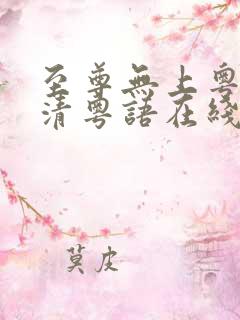 至尊無上粵
清粵語在綫
莫皮